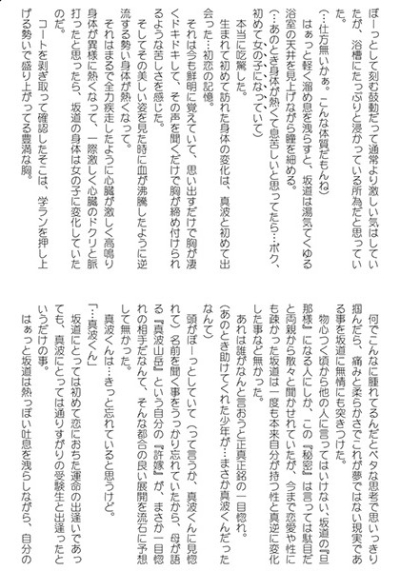 ぼーっとして刻む鼓動だって通常より激しい気はしてい
たが、浴槽にたっぷりと浸かっている所為だと思ってい
た。
(…仕方無いかぁ。こんな体質だもんね)
はぁっと軽く溜め息を洩らすと、坂道は湯気でくゆる
浴室の天井を見上げながら瞳を細める。
(…あのとき身体が熱くて息苦しいと思ってたら…ボク、
初めて女の子になっていて)
本当に吃驚した。
生まれて初めて訪れた身体の変化は、真波と初めて出
会った…初恋の記憶。
それは今も鮮明に覚えていて、思い出すだけで胸が凄
くドキドキして、その声を聞くだけで胸が締め付けられ
るような苦しさを感じた。
そしてその美しい姿を見た時に血が沸騰したように逆
流する勢い身体が熱くなって。
それはまるで全力疾走したように心臓が激しく高鳴り
身体が異様に熱くなって、一際激しく心臓のドクリと脈
打ったと思ったら、坂道の身体は女の子に変化していた
のだ。
コートを剥ぎ取って確認したそこは、学ランを押し上
げる勢いで盛り上がってる豊満な胸。
何でこんなに腫れてるんだとベタな思考で思いっきり
掴んだら、痛みと柔らかさでこれが夢ではない現実であ
る事を坂道に無情にも突きつけた。
物心つく頃から他の人に言ってはいけない、坂道の『旦
那様』になる人にしか、この『秘密』は言っては駄目だ
と両親から散々と聞かせれていたが、今まで恋愛や性に
も疎かった坂道は一度も本来自分が持つ性と真逆に変化
した事など無かった。
あれは誰がなんと言おうと正真正銘の一目惚れ。
(あのとき助けてくれた少年が…まさか真波くんだった
なんて)
頭がぼーっとしていて(って言うか、真波くんに見惚
れて)名前を聞く事をうっかり忘れていたから、母が語
る『真波山岳』という自分の『許嫁』が、まさか一目惚
れの相手だなんて、そんな都合の良い展開を流石に予想
して無かった。
真波くんは…きっと忘れていると思うけど。
「…真波くん」
坂道にとっては初めて恋におちた運命の出逢いであっ
ても、真波にとっては通りすがりの受験生と出逢ったと
いうだけの事。
はぁっと坂道は熱っぽい吐息を洩らしながら、自分の